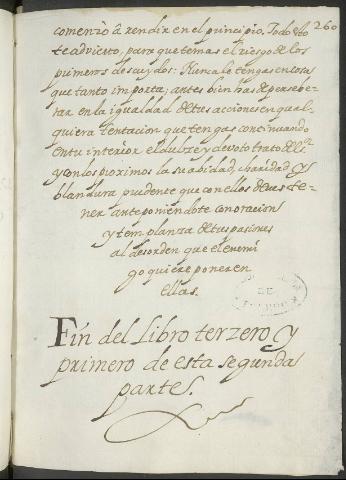 comenzò â rendir en el principio. Todo esto 260
te advierto, para que temas el riesgo de los
primeros descuydos: Nunca le tengas en cosa
que tanto importa, antes bien has de perseve-
rar en la igualdad de tus acciones en qual-
quiera tentacion que tengas continuando
en tu interior el dulze y devoto trato del Sr
y con los proximos la suabidad, charidad y
blandura prudente que con ellos debes te-
ner anteponiendote con oracion
y templanza de tus pasiones
al desorden que el enemi
go quiere poner en
ellas.
DE
Fin del Libro terzero y
primero de esta segunda
parte.